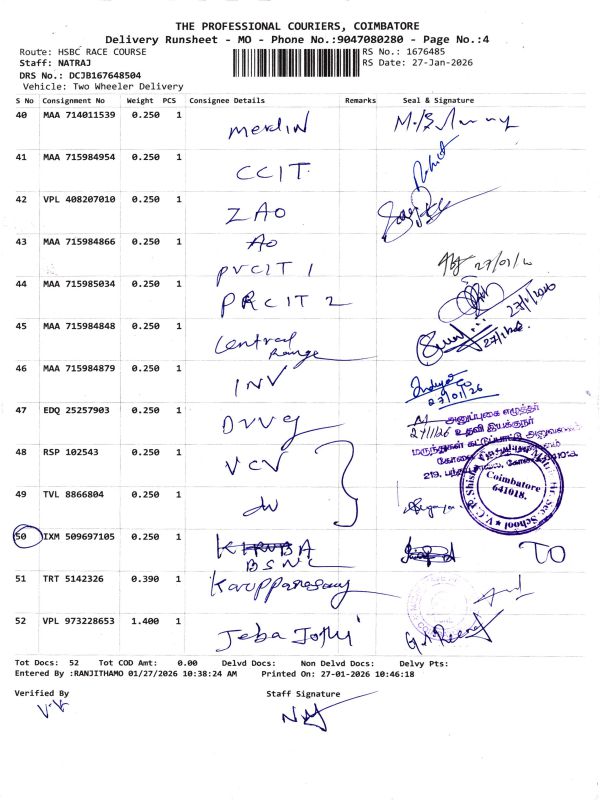 THE PROFESSIONAL COURIERS, COIMBATORE
Delivery Runsheet - MO - Phone No.:9047080280 - Page No.:4
Route: HSBC RACE COURSE
RS No.: 1676485
Staff: NATRAJ
RS Date: 27-Jan-2026
DRS No.: DCJB167648504
Vehicle: Two Wheeler Delivery
S No Consignment No Weight PCS Consignee Details Remarks Seal & Signature
40 MAA 714011539 0.250 1 Merlin
41 MAA 715984954 0.250 1 CCIT Rohit
42 VPL 408207010 0.250 1 ZAO
43 MAA 715984866 0.250 1 AO
PVCIT 1 27/01/26
44 MAA 715985034 0.250 1 PRCIT 2 27/1/2026
45 MAA 715984848 0.250 1 Central Range 27/1/26
46 MAA 715984879 0.250 1 INV 27/01/26
47 EDQ 25257903 0.250 1 DVVG 27/1/26
அனுப்புகை எழுத்தர்
உதவி இயக்குநர்
மருந்துகள் கட்டுப்பாட்டு அலுவலகம்
48 RSP 102543 0.250 1 VCV
Coimbatore
641018.
49 TVL 8866804 0.250 1 dv
50 IXM 509697105 0.250 1 BSNL TO
51 TRT 5142326 0.390 1 Karuppanasamy
52 VPL 973228653 1.400 1 Jeba Jothi
Tot Docs: 52 Tot COD Amt: 0.00 Delvd Docs: Non Delvd Docs: Delvy Pts:
Entered By :RANJITHAMO 01/27/2026 10:38:24 AM Printed On: 27-01-2026 10:46:18
Verified By Staff Signature